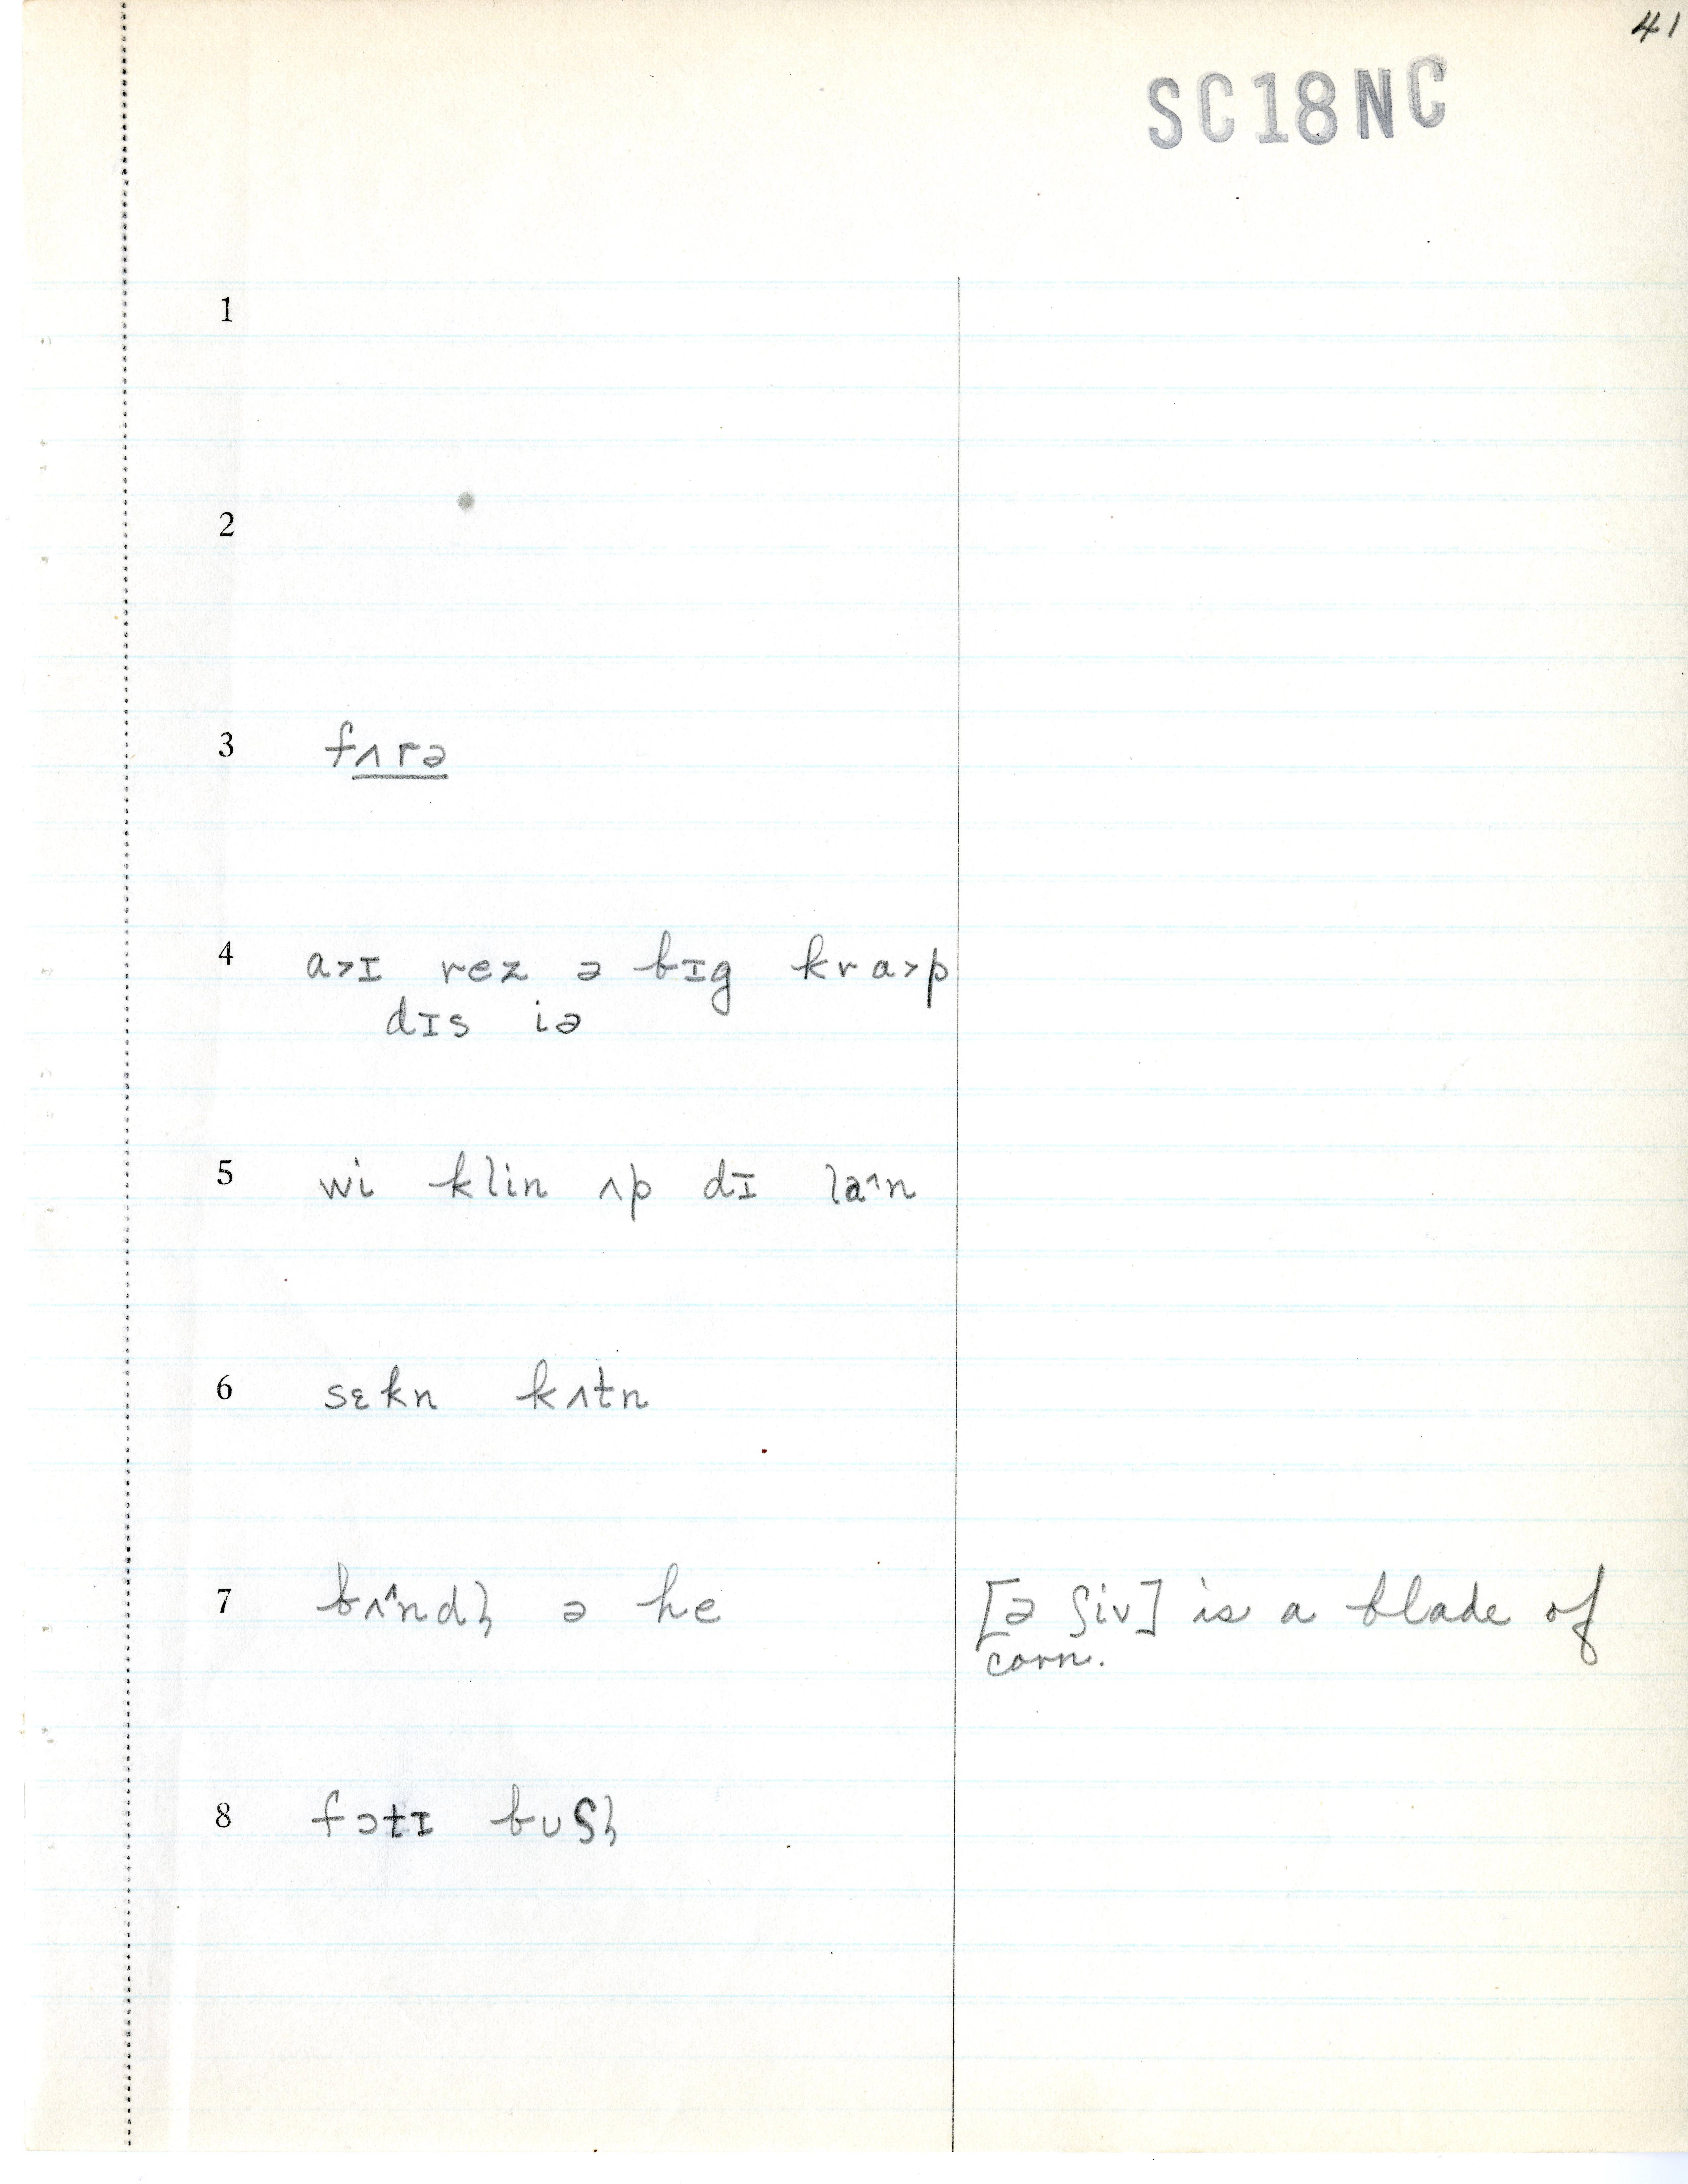 41
SC18NC
1
2
3 fʌrə
4 a>ɪ rez ə bɪg kra>p
dɪs iə
5 wi klin ʌp dɪ la^n
6 sɛkn kʌtn
7 bʌ^ndl̩ ə he [ə ʃiv] is a blade of
corn.
8 fɔtɪ buʃl̩